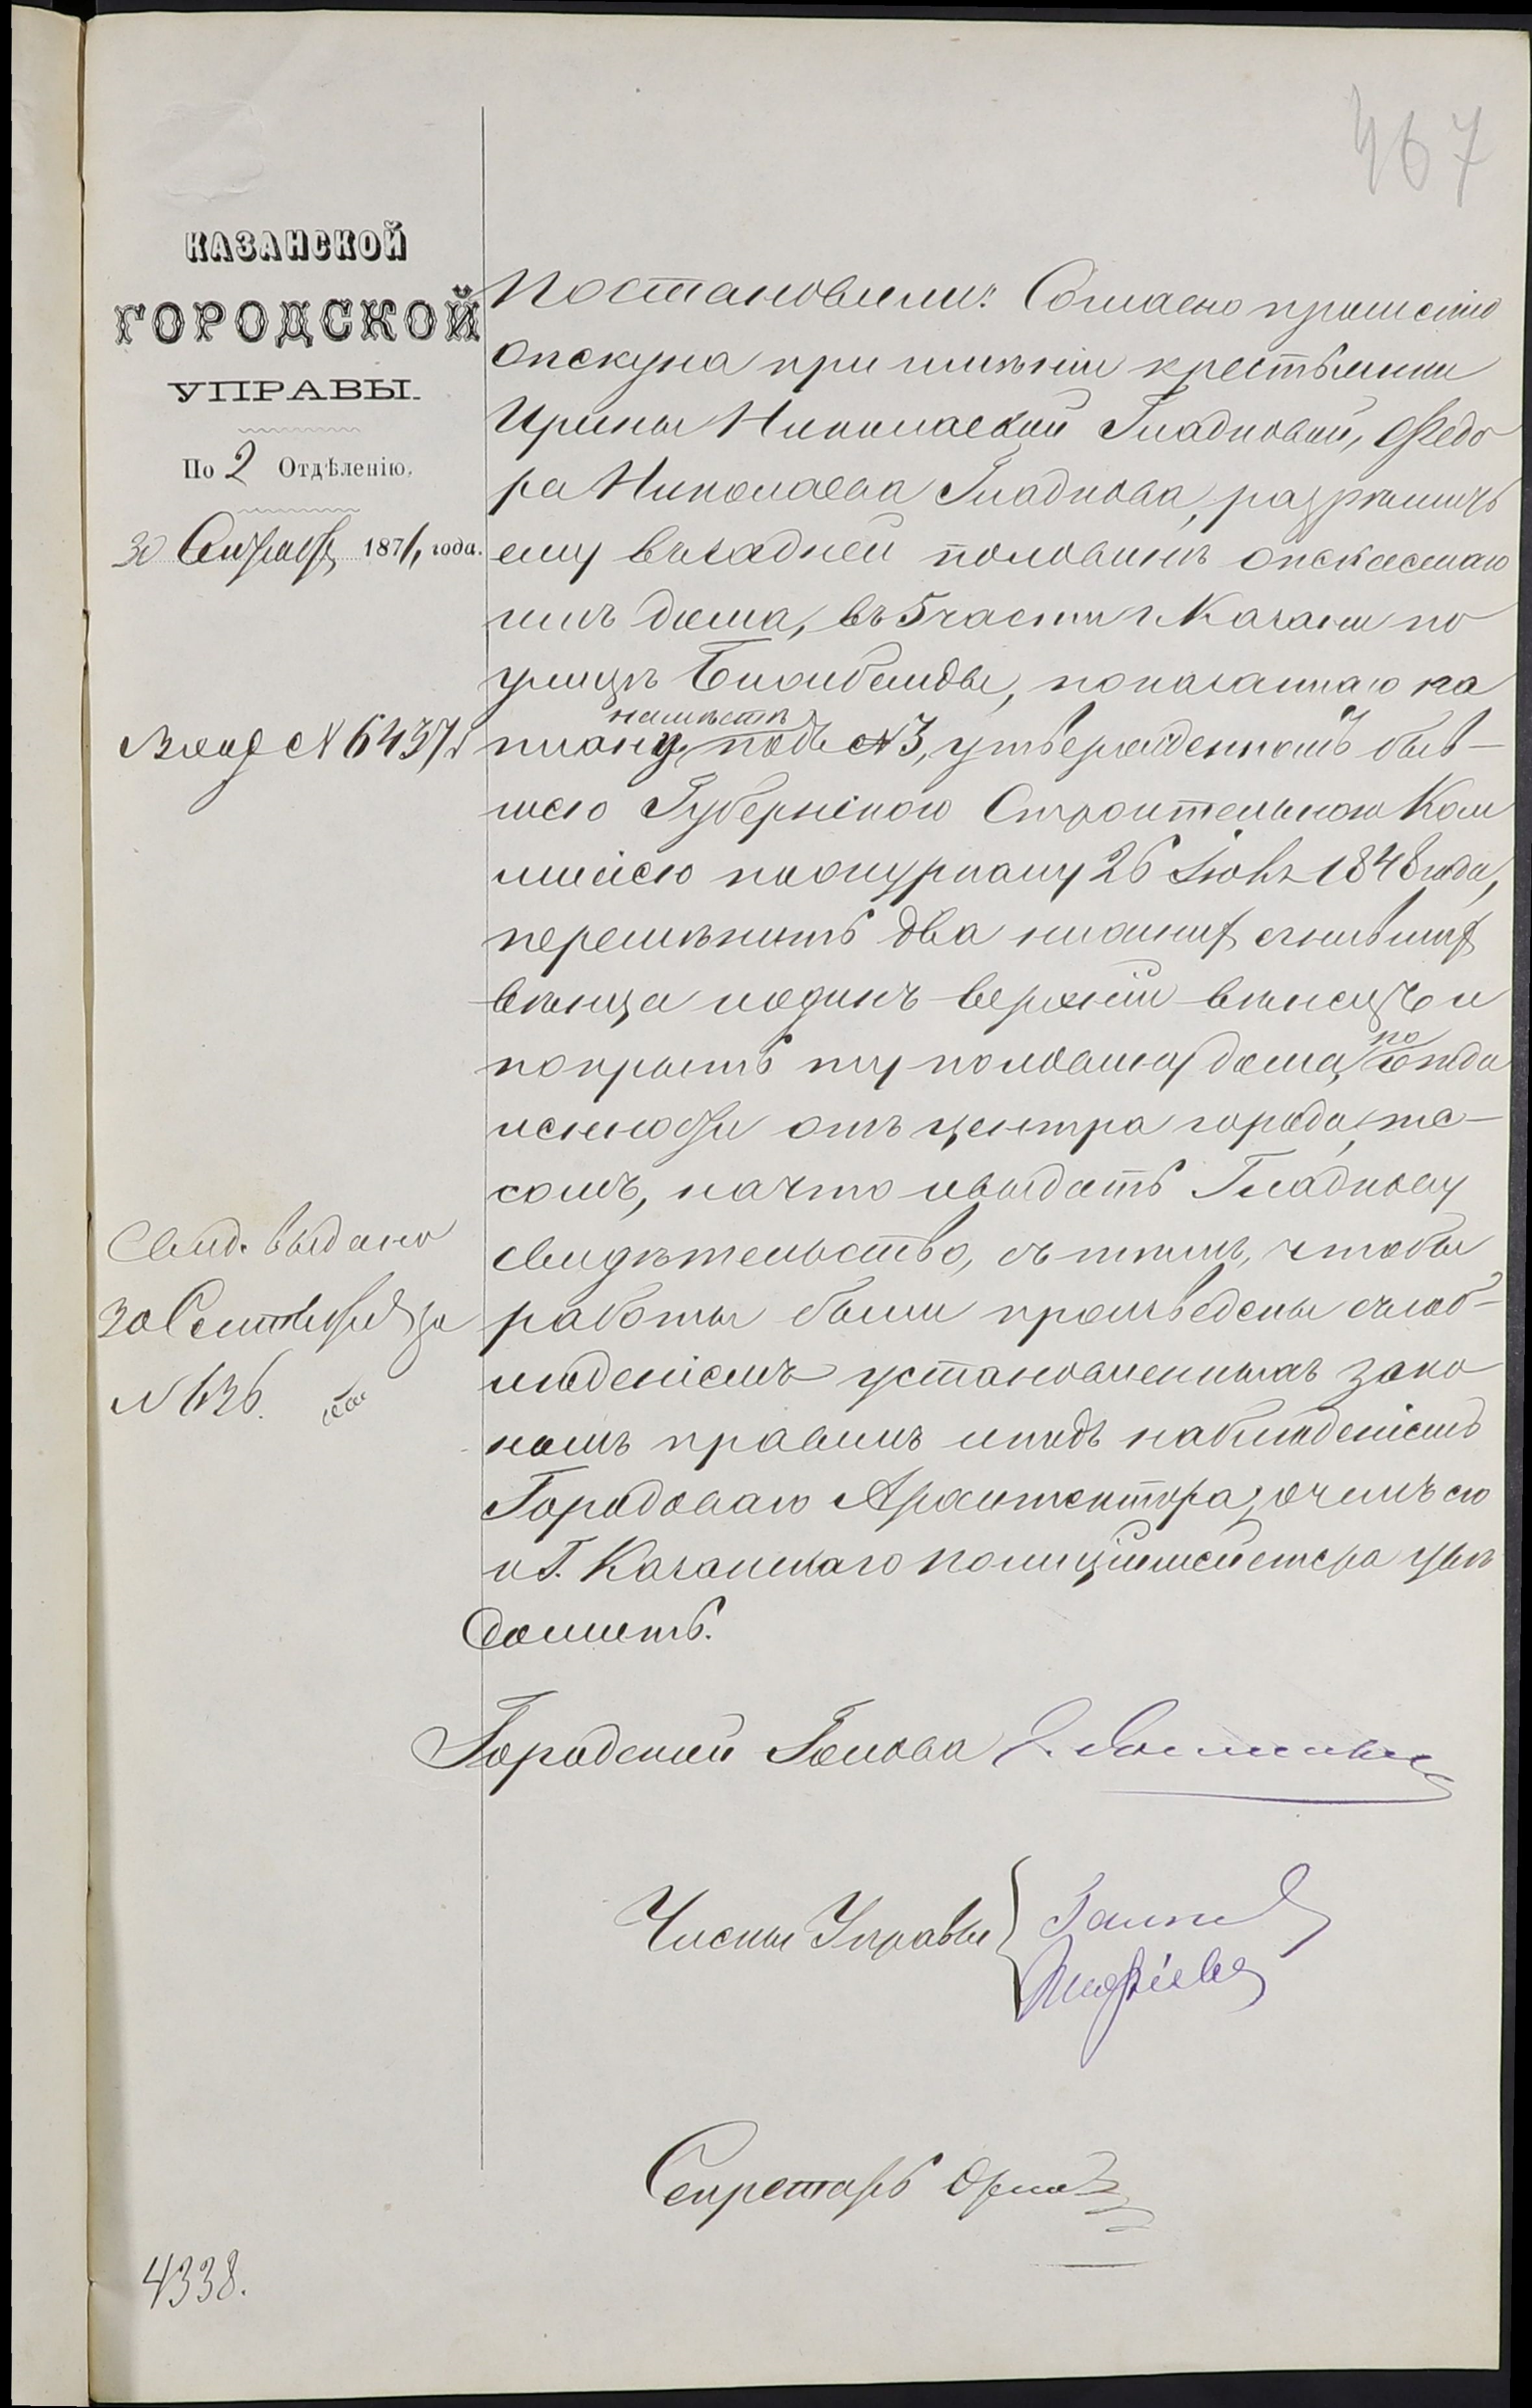 467
КАЗАНСКОЙ
ГОРОДСКОЙ
УПРАВЫ.
По 2 Отдѣленію.
30 Сентября 1871 года.
Вход № 6437
Свид. выдано
30 Сентября за
№ 636.
Постановили: Согласно прошенію
опекуна при имѣніи крестьянки
Ирины Николаевой Гладковой, Ѳедо
ра Николаева Гладкова, разрѣшить
ему въ задней половинѣ опекаемаго
имъ дома, въ 5 части г. Казани по
улицѣ Бишбалды, показаннаго на
плану на мѣстѣ подъ № 3, утвержденномъ быв-
шею Губернскою Строительною Ком
мисіею по журналу 26 Іюля 1848 года,
перемѣнить два нижнихъ сгнившихъ
вѣнца и одинъ верхній вѣнецъ и
покрыть ту половину дома, по отда
ленности отъ центра города, те-
сомъ, на что и выдать Гладкову
свидѣтельство, съ тѣмъ, чтобы
работы были произведены съ соб-
люденіемъ установленныхъ зако
номъ правилъ и подъ наблюденіемъ
Городоваго Архитектора, о чемъ его
и Г. Казанскаго Полиціймейстера увѣ
домить.
Городской Голова
Члены Управы
Секретарь
4338.